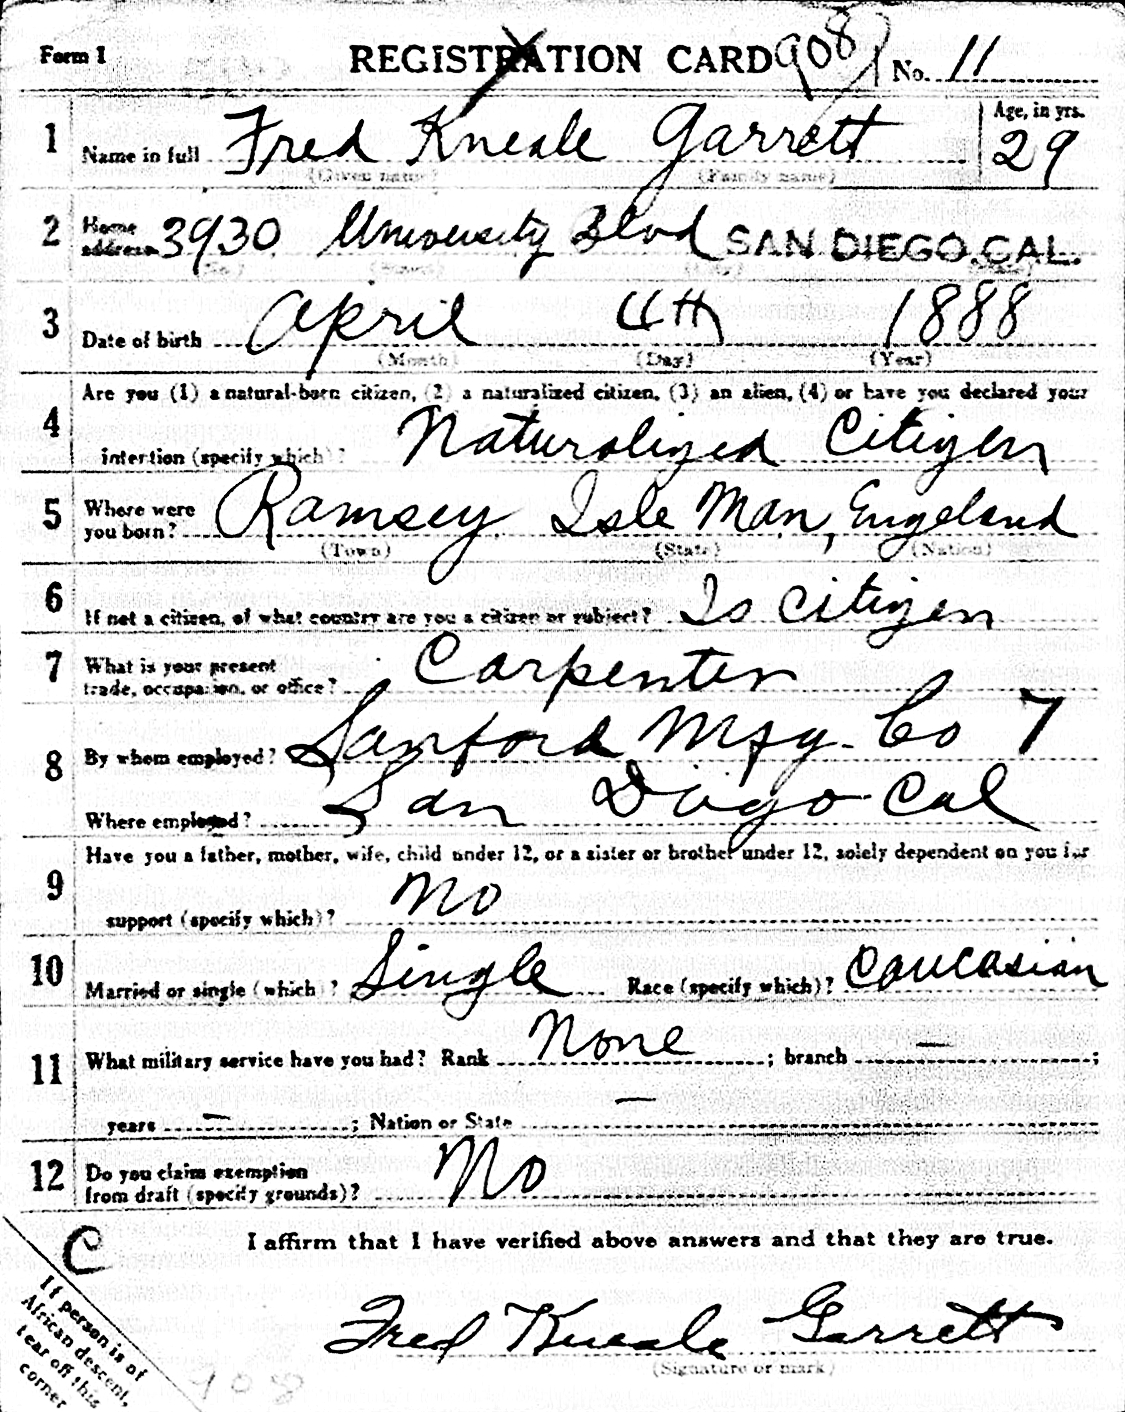 Form 1 REGISTRATION CARD 908 No. 11
1 Name in full Fred Kneale Garrett Age, in yrs. 29
(Given name) (Family name)
2 Home address 3930 University Blvd SAN DIEGO, CAL.
(No.) (Street) (City) (State)
3 Date of birth April 4th 1888
(Month) (Day) (Year)
4 Are you (1) a natural-born citizen, (2) a naturalized citizen, (3) an alien, (4) or have you declared your
intention (specify which)? Naturalized Citizen
5 Where were you born? Ramsey Isle Man, Engeland
(Town) (State) (Nation)
6 If not a citizen, of what country are you a citizen or subject? Is Citizen
7 What is your present trade, occupation, or office? Carpenter
8 By whom employed? Sanford Mfg. Co 7
Where employed? San Diego Cal
9 Have you a father, mother, wife, child under 12, or a sister or brother under 12, solely dependent on you for
support (specify which)? No
10 Married or single (which)? Single Race (specify which)? Caucasian
11 What military service have you had? Rank None ; branch — ;
years — ; Nation or State —
12 Do you claim exemption from draft (specify grounds)? No
I affirm that I have verified above answers and that they are true.
C
If person is of
African descent,
tear off this
corner
Fred Kneale Garrett
(Signature or mark)
908